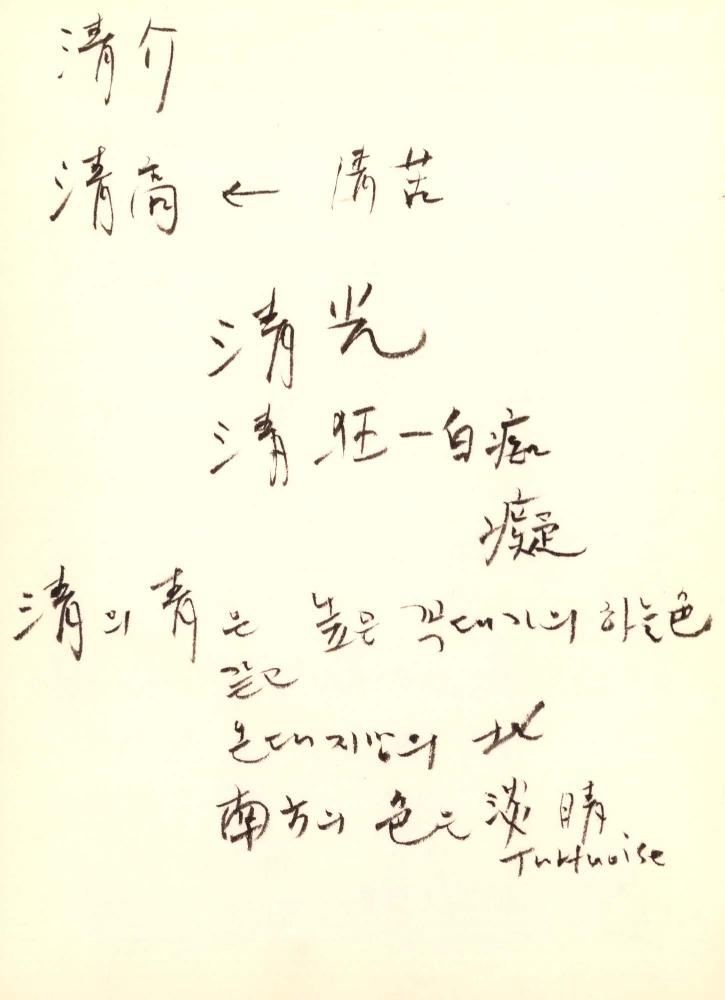 清介
清高 ← 清苦
清光
清狂 - 白痴
癡
清의 靑은 높은 꼭대기의 하늘色
같고
온대지방의 北
南方의 色은 淡晴
Turtuoise